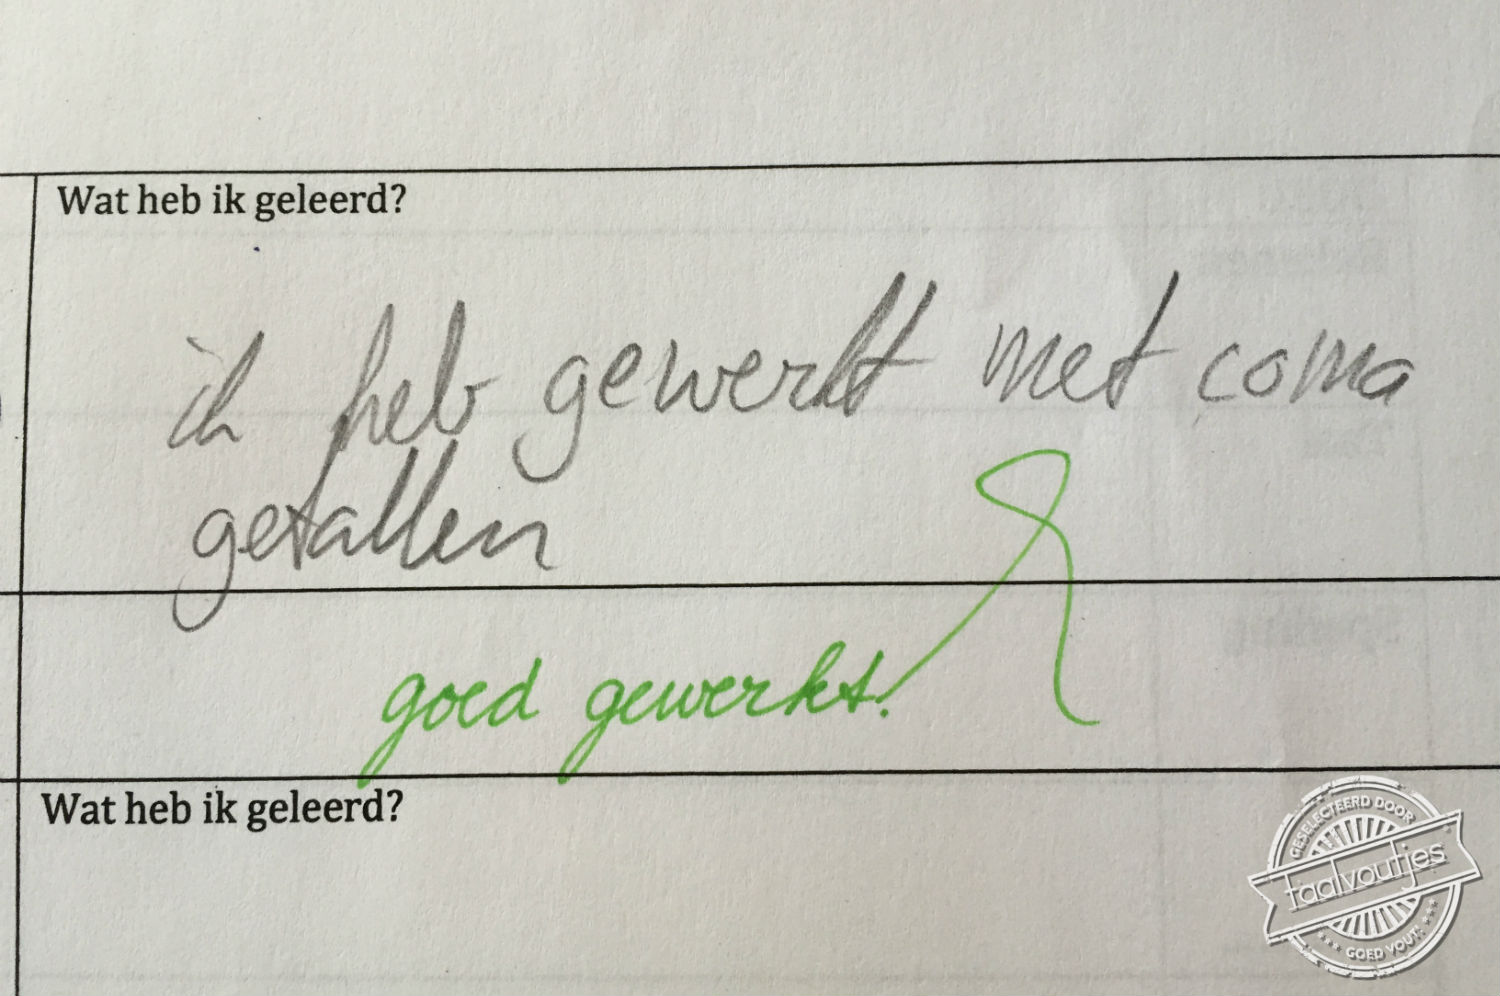 Wat heb ik geleerd?
ik heb gewerkt met coma
getallen
goed gewerkt!
Wat heb ik geleerd?
GESELECTEERD DOOR
taalvoutjes
GOED VOUT!